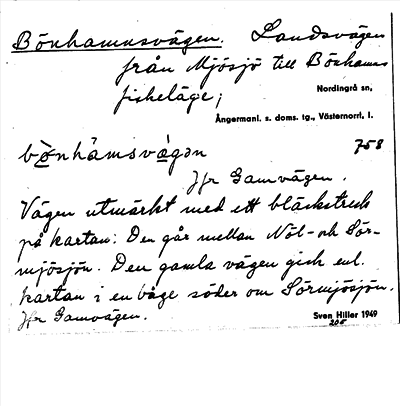 Bönhamnsvägen. Landsvägen
från Mjösjö till Bönhamns
fiskeläge;
Nordingrå sn,
Ångermanl. s. doms. tg., Västernorrl, l.
bònhàmsvǝ̀gǝn 758
Jfr Gamvägen.
Vägen utmärkt med ett bläckstreck
på kartan: Den går mellan Nöl- och Sör-
mjösjön. Den gamla vägen gick enl.
kartan i en båge söder om Sörmjösjön.
Jfr Gamvägen.
Sven Hiller 1949
205